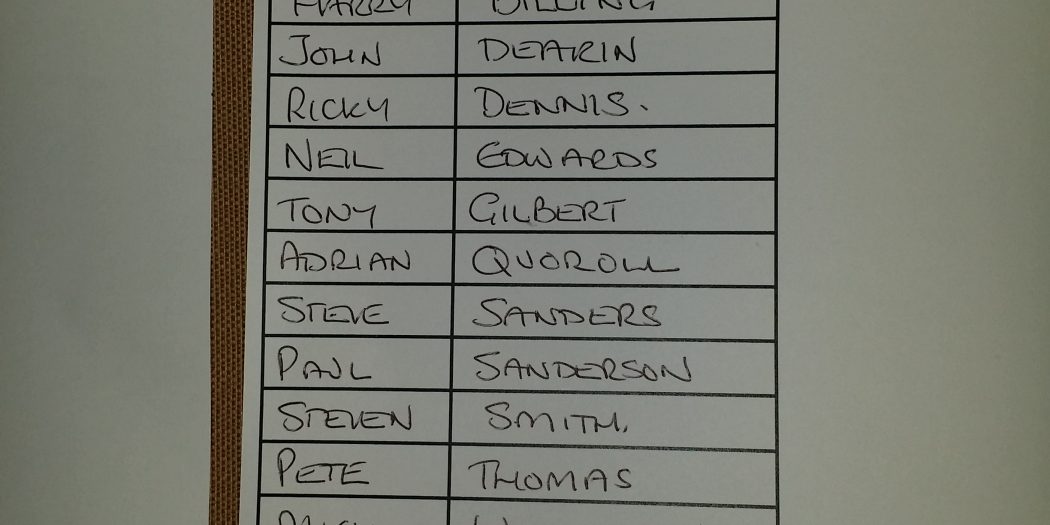 HARRY BILLING
JOHN DEAKIN
RICKY DENNIS.
NEIL EDWARDS
TONY GILBERT
ADRIAN QUOROLL
STEVE SANDERS
PAUL SANDERSON
STEVEN SMITH.
PETE THOMAS